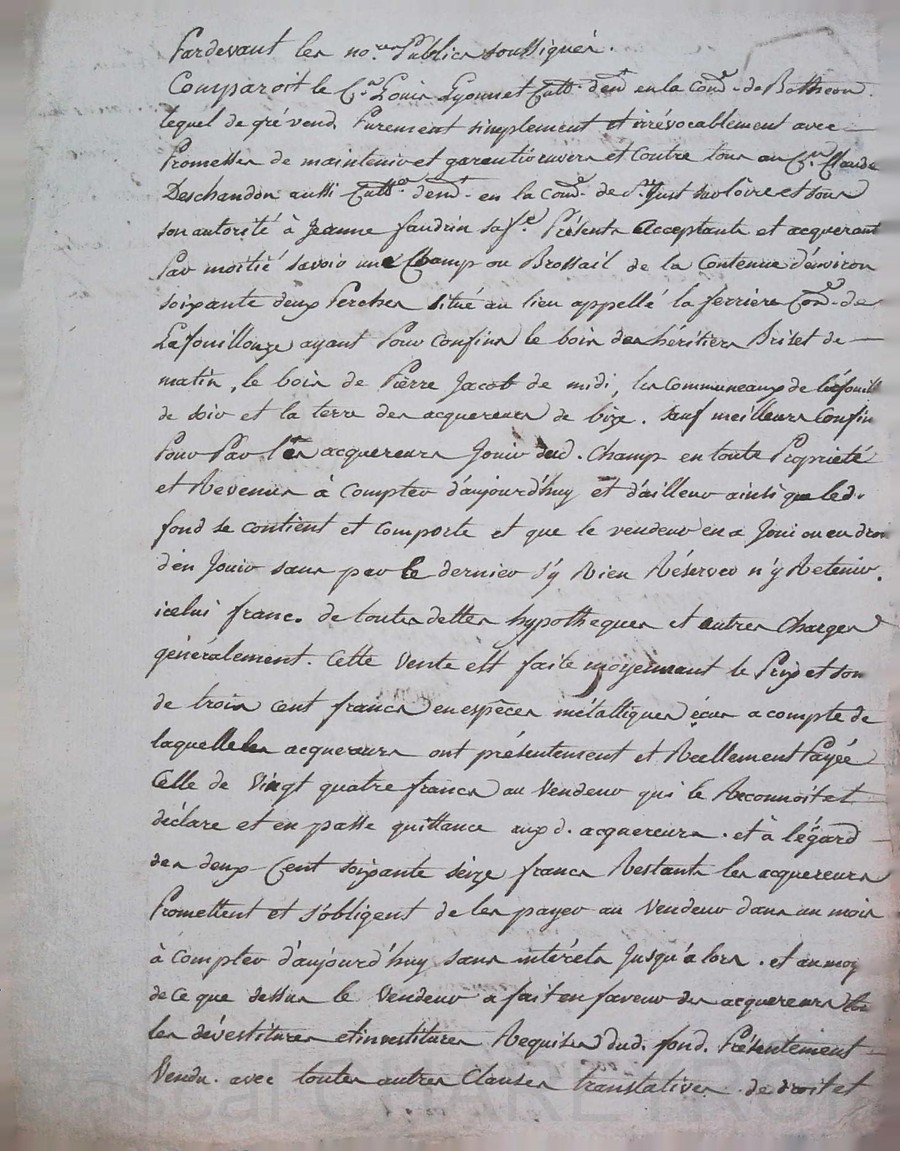 Pardevant les no.res Publics soussignés.
Comparoit le C.n Louis Lyonnet Cult.r dem.t en la Com.e de Botheon.
lequel de gré vend Purement simplement et irrévocablement avec
Promesses de maintenir et garantir envers et contre tous au C.n Claude
Deschandon aussi Cult.r dem.t en la Com.e de S.t Just sur loire et sous
son autorité à Jeanne faudrin sa f.e Présente Acceptante et acquerant
Par moitié savoir une Champ ou Brossail de la Contenue d'environ
soixante deux Perches situé au lieu appellé la ferriere Com.e de
Lafouillouze ayant Pour Confins le bois des héritiers Briset de
matin, le bois de Pierre Jacob de midi, les Communeaux de lafouill
de soir et la terre des acquereurs de bize. sauf meilleurs Confins
Pour Par les acquereurs Jouir dud. Champ en toute Propriété
et Revenus à Compter d'aujourd'huy et d'ailleur ainsi que led.
fond se contient et comporte et que le vendeur en a Joui ou eu droit
d'en Jouir sans par le dernier s'y Rien Réserver n'y Retenir.
icelui franc. de toutes dettes hypotheques et autres Charges
généralement. Cette Vente est faite moyennant le Prix et som
de trois cent francs en espèces métalliques écus a compte de
laquelle les acquereurs ont présentement et Réellement Payée
Celle de Vingt quatre francs au Vendeur qui le Reconnoit et
déclare et en passe quittance aux d. acquereurs. et à l'égard
des deux Cent soixante seize francs Restants les acquereurs
Promettent et s'obligent de les payer au Vendeur dans un mois
à Compter d'aujourd'huy sans intérets Jusqu'a lors. et au moy
de Ce que dessus le Vendeur a fait en faveur des acquereurs
les dévestitures et investitures Requises dud. fond. Présentement
Vendu. avec toutes autres Clauses translatives de droit et